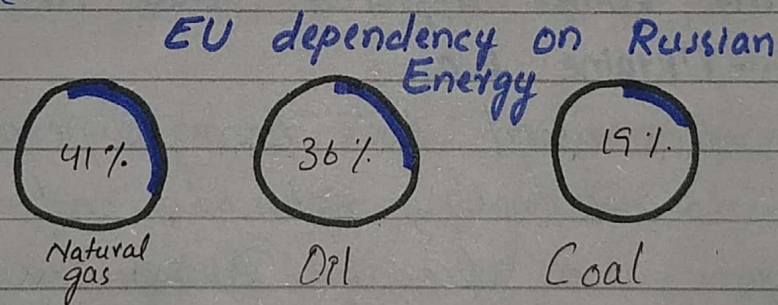 EU dependency on Russian
Energy
41%
36%
19%
Natural
gas
Oil
Coal